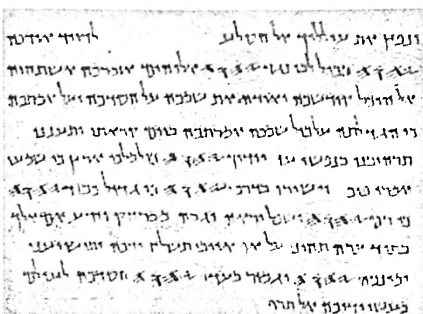 ונפץ את עולליך אל הסלע לדויד אודכה
𐤉𐤄𐤅𐤄 בכול לבי נגד 𐤉𐤄𐤅𐤄 אלוהים אזמרכה אשתחוה
אל היכל קודשכה ואודה את שמכה על חסדכה ועל אמתכה
כי הגדלתה על כול שמכה אמרתכה ביום קראתי ותענני
תרהיבני בנפשי עוז יודוך 𐤉𐤄𐤅𐤄 כול מלכי ארץ כי שמעו
אמרי וישירו בדרכי 𐤉𐤄𐤅𐤄 כי גדול כבוד 𐤉𐤄𐤅𐤄
כי רם 𐤉𐤄𐤅𐤄 ושפל יראה וגבה ממרחק יידע אם אלך
בתוך צרה תחיני על אף אויבי תשלח ידכה ותושיעני
ימינכה 𐤉𐤄𐤅𐤄 יגמור בעדי 𐤉𐤄𐤅𐤄 חסדכה לעולם
מעשי ידיכה אל תרף